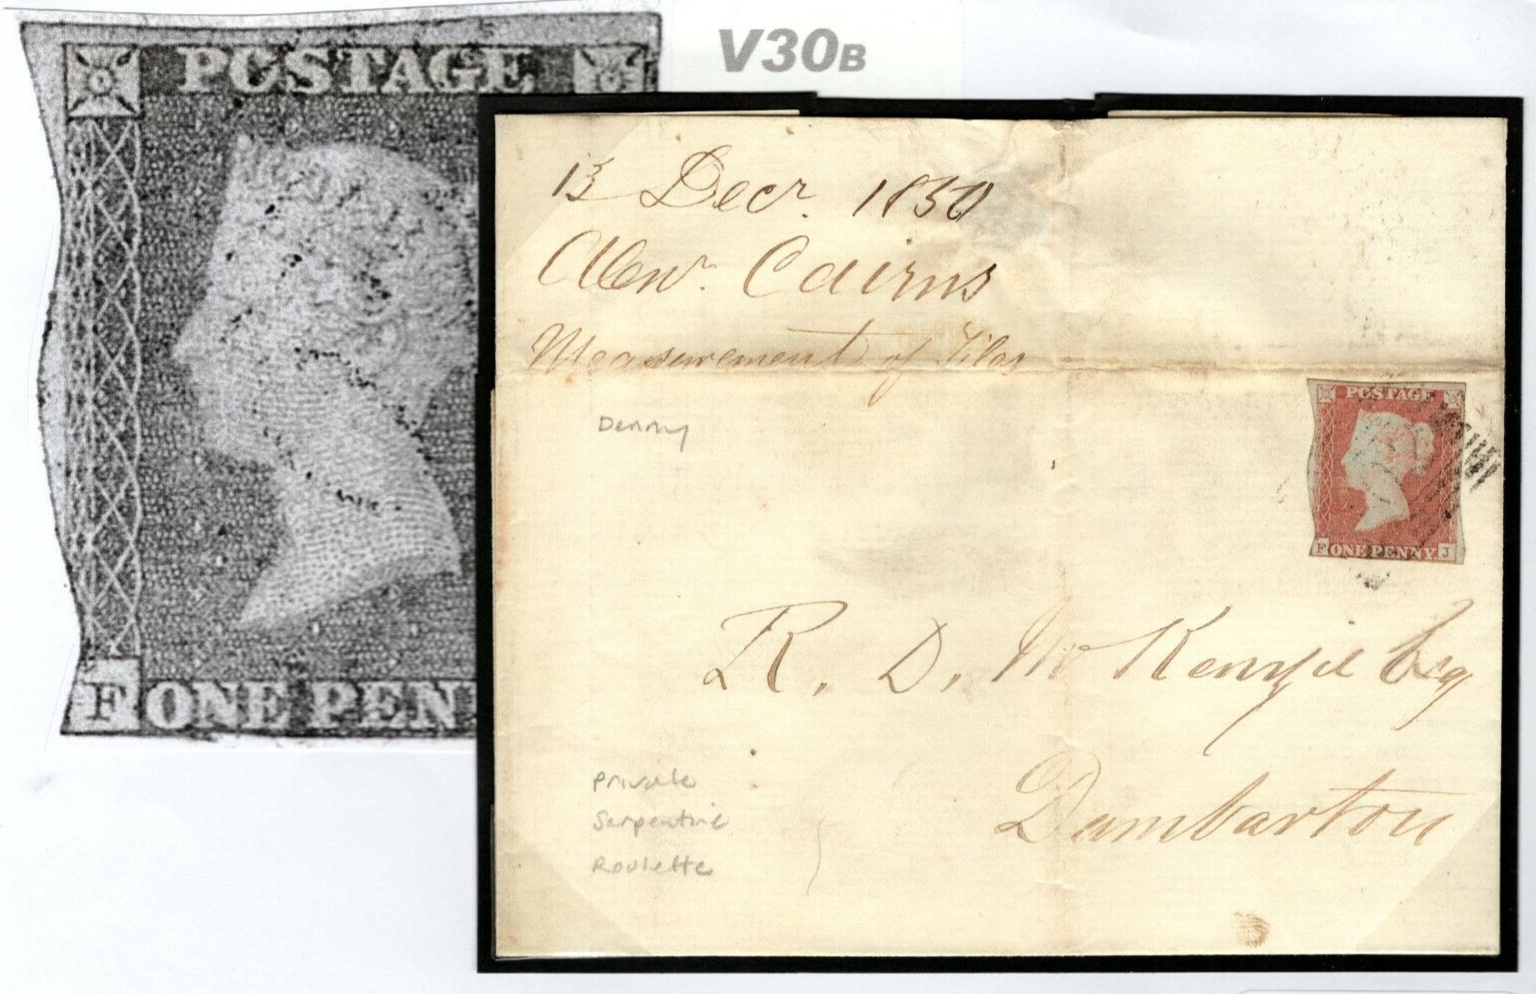 POSTAGE
F ONE PEN
V30B
13 Decr. 1850
Alexr. Cairns
Measurement of Tiles
Denny
POSTAGE
F ONE PENNY J
R. D. McKenzie Esq
Dumbarton
Private
Serpentine
Roulette